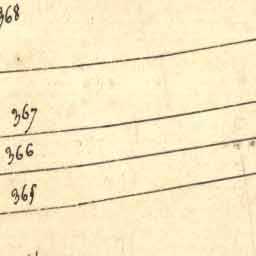 368
367
366
365